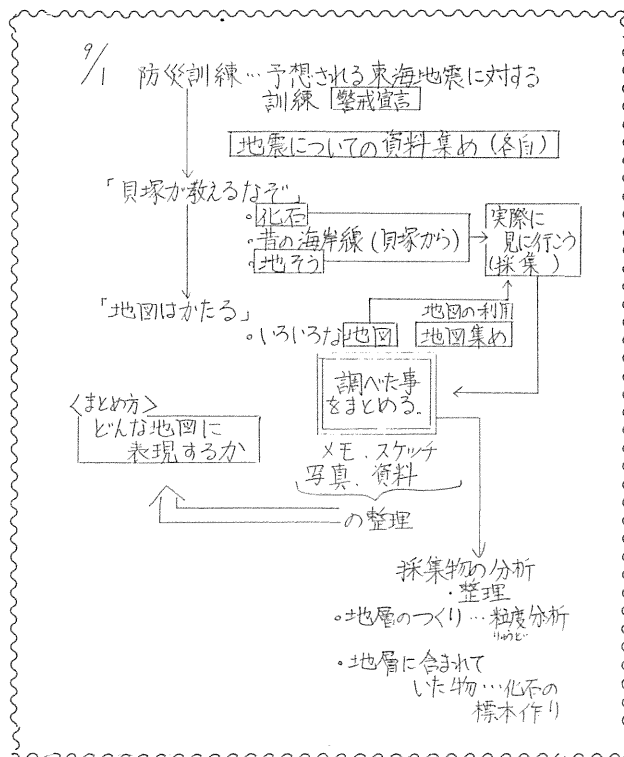 9/1 防災訓練…予想される東海地震に対する
訓練 警戒宣言
地震についての資料集め(各自)
「貝塚が教えるなぞ」
・化石
・昔の海岸線(貝塚から)
・地そう
実際に
見に行こう
(採集)
「地図はかたる」
・いろいろな地図
地図の利用
地図集め
調べた事
をまとめる。
〈まとめ方〉
どんな地図に
表現するか
メモ、スケッチ
写真、資料
の整理
採集物の分析
・整理
・地層のつくり…粒度分析
りゅうど
・地層に含まれて
いた物…化石の
標本作り